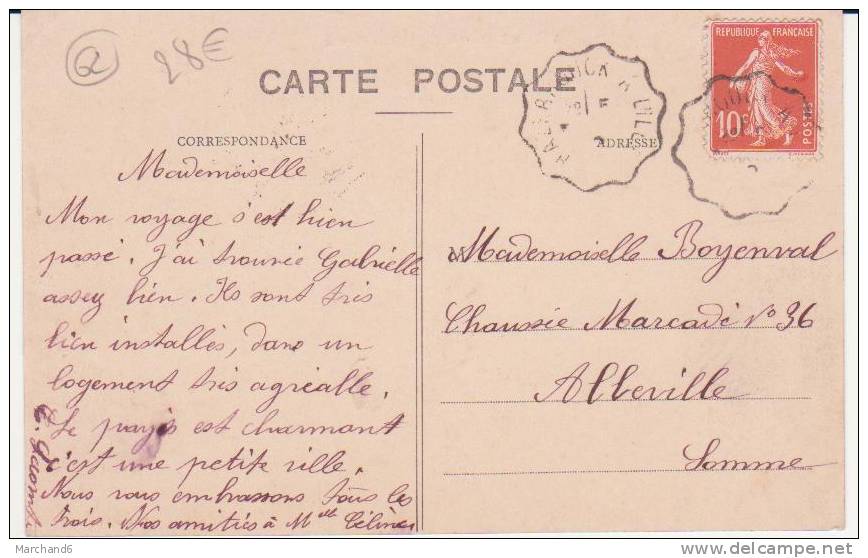 Q
28€
CARTE POSTALE
CORRESPONDANCE
ADRESSE
REPUBLIQUE FRANÇAISE
10c
POSTES
Mademoiselle
Mon voyage s'est bien
passé. J'ai trouvée Gabrielle
assez bien. Ils sont très
bien installés, dans un
logement très agréable.
Le pays est charmant
c'est une petite ville.
Nous vous embrassons tous les
trois. Nos amitiés à Melle Céline
Mademoiselle Boyenval
Chaussée Marcadé No 36
Abbeville
Somme
Marchand6
www.delcampe.net